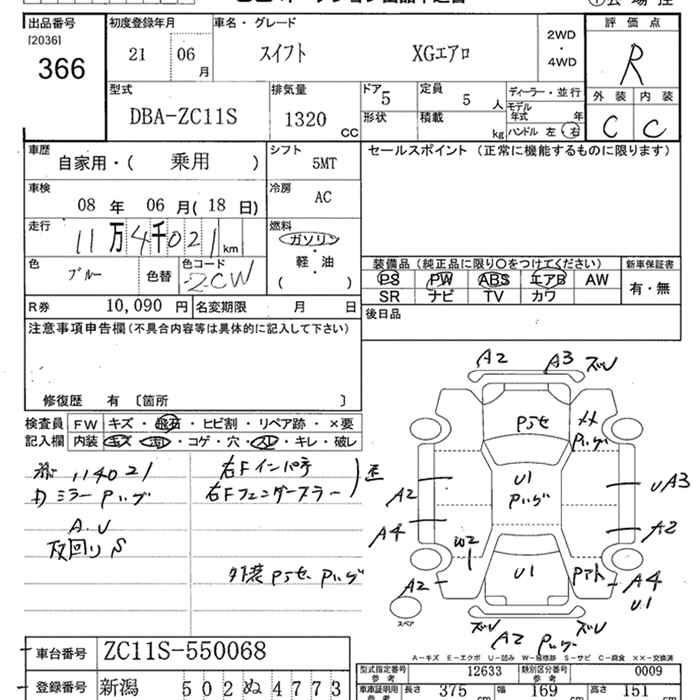 出品番号
[2036]
366
初度登録年月
21 06月
車名・グレード
スイフト XGエアロ
2WD
・
4WD
評価点
R
外装 内装
C C
型式
DBA-ZC11S
排気量
1320 CC
ドア 5
定員 5 人
形状
積載 kg
ディーラー・並行
モデル年式 年
ハンドル 左・右
車歴
自家用・( 乗用 )
シフト
5MT
セールスポイント (正常に機能するものに限ります)
車検
08 年 06 月 ( 18 日)
冷房
AC
走行
11万4千021km
燃料
ガソリン
・
軽・油
( )
色
ブルー
色替
色コード
ZCW
装備品(純正品に限り○をつけてください)
PS PW ABS エアB AW
SR ナビ TV カワ
新車保証書
有・無
R券 10,090 円
名変期限 月 日
後日品
注意事項申告欄(不具合内容等は具体的に記入して下さい)
修復歴 有〔箇所 〕
検査員記入欄
FW キズ・飛石・ヒビ割・リペア跡・×要
内装 キズ・汚レ・コゲ・穴・スレ・キレ・破レ
114021
ミラー Pハゲ
A.U
右Fインパネ
右Fフェンダーステー
外装 P5セ Pハゲ
A2 A3 ズレ
P5セ
Pハゲ
U1
Pハゲ
A2
UA3
A4
A2
W2
A2
U1
A4
U1
ズレ
A2 Pハゲ
ズレ
スペア
A-キズ E-エクボ U-凹み W-板補跡 S-サビ C-腐食 ××-交換済
車台番号 ZC11S-550068
登録番号 新潟 502ぬ4773
型式指定番号 参考 12633
類別区分番号 参考 0009
車庫証明用参考 長さ 375 幅 169 高さ 151